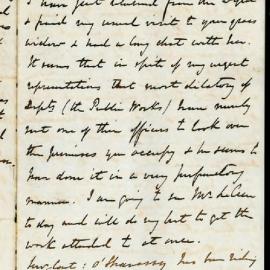 I have just returned from the
& paid my usual visit to your grass
widow & had a long chat with her.
It seems that in spite of my urgent
representations that most dilatory of
Depts (the Public Works) have merely
sent one of their officers to look over
the premises you occupy & he seems to
have done it in a very perfunctory
manner. I am going to see Mr
to day and will do my best to get the
work attended to at once.
O'Shanassy has been